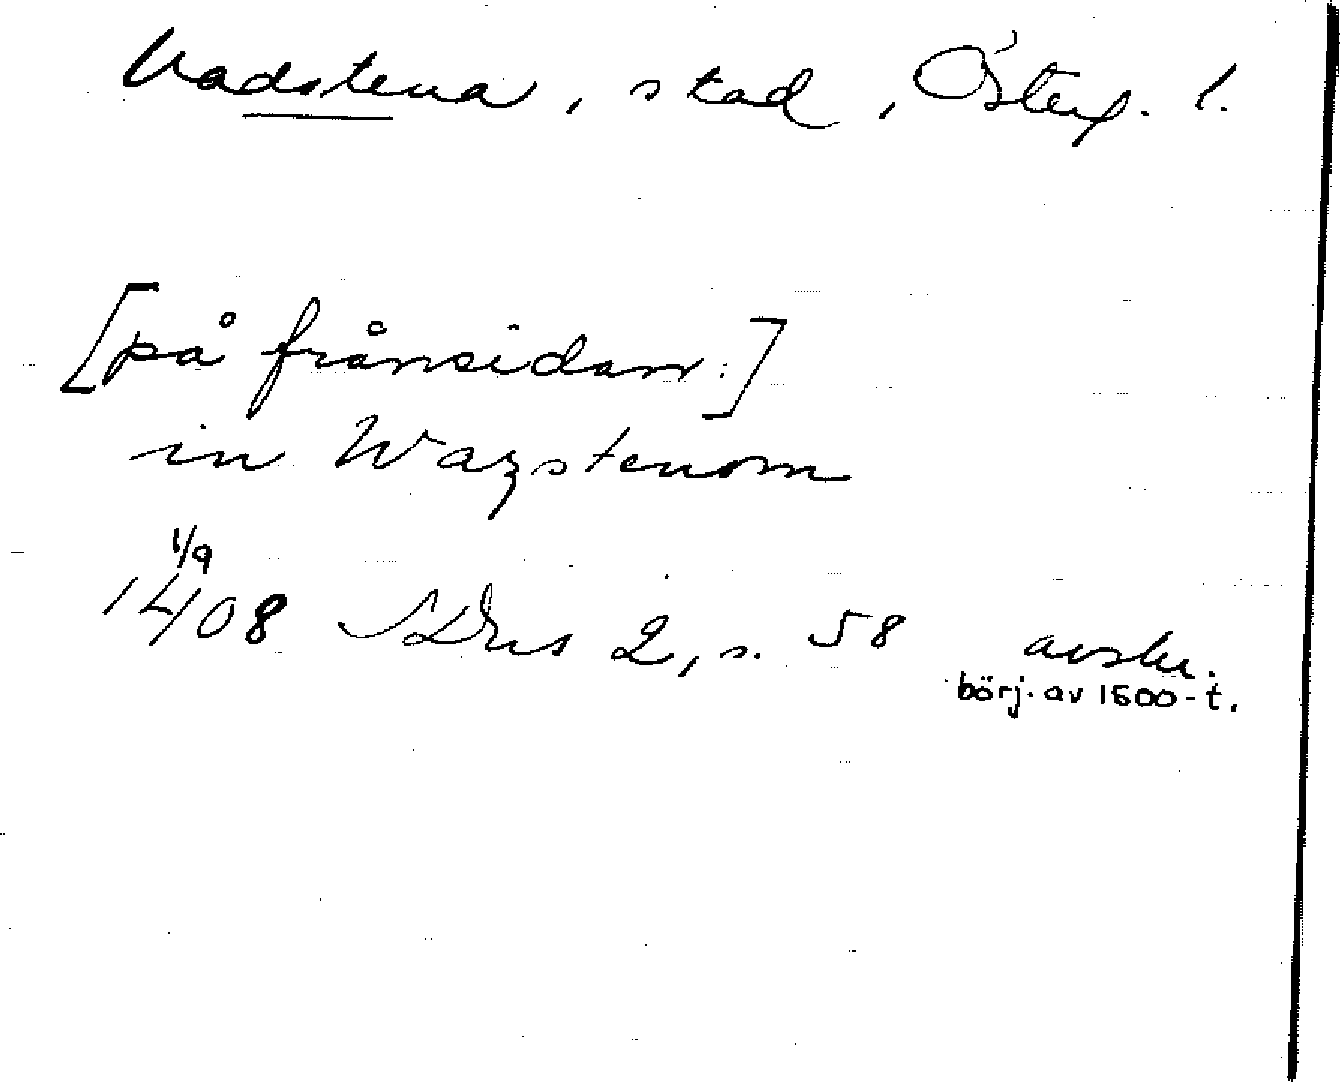 Vadstena, stad, Österg. l.
[på frånsidan:]
in Wazstenom
1/9
1408 SDns 2, s. 58 avskr.
börj. av 1500-t.